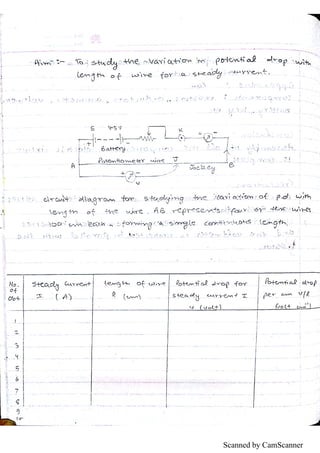 Aim :- To study the variation in potential drop with
length of wire for a steady current.
K
Battery
Potentiometer wire J
A
Jockey
B
V
circuit diagram for studying the variation of p.d. with
length of the wire. AB represents four or the wires
100 cm each forming a single continuous length
No. of Obs
Steady Current I (A)
length of wire l (cm)
Potential drop for steady current I V (volt)
Potential drop per cm V/l (volt cm⁻¹)
1
2
3
4
5
6
7
8
9
10
Scanned by CamScanner